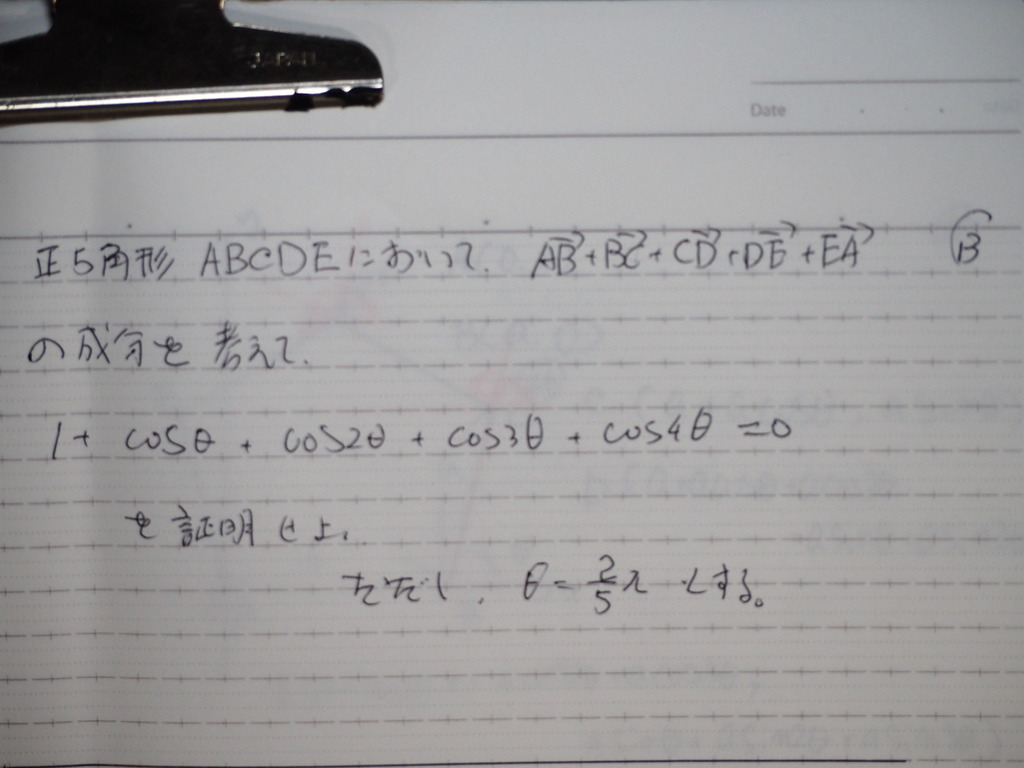 JAPAN
Date
正5角形 ABCDEにおいて、 AB→+BC→+CD→+DE→+EA→ B
の成分を考えて、
1+ cosθ + cos2θ + cos3θ + cos4θ =0
を証明せよ。
ただし、θ=2/5π とする。